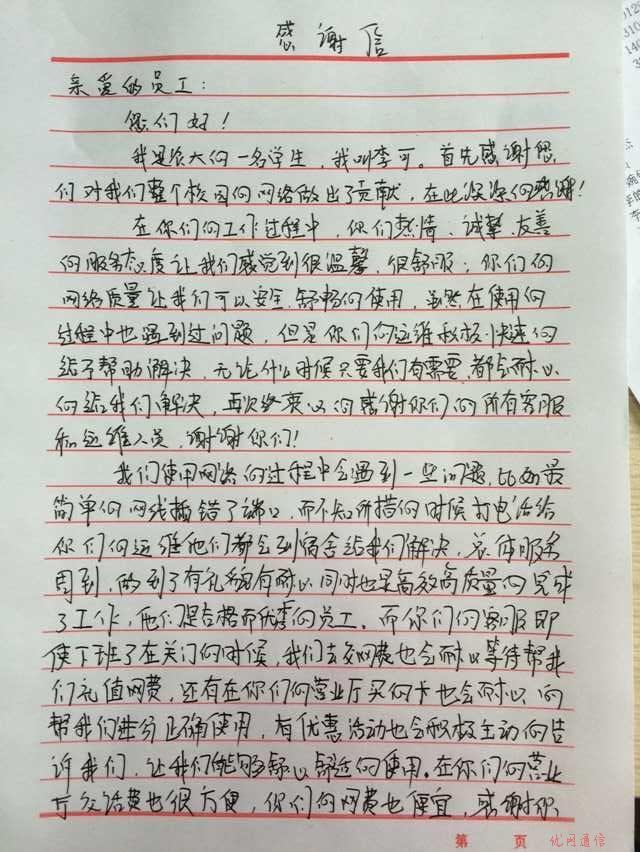 感谢信
亲爱的员工：
您们好！
我是农大的一名学生，我叫李可。首先感谢您
们对我们整个校园的网络做出了贡献，在此深深的感谢！
在你们的工作过程中，你们热情、诚挚、友善
的服务态度让我们感觉到很温馨，很舒服；你们的
网络质量让我们可以安全、舒畅的使用，虽然在使用的
过程中也遇到过问题，但是你们的运维积极、快速的
给予帮助解决，无论什么时候只要我们有需要，都会耐心
的给我们解决，再次衷心的感谢你们的所有客服
和运维人员，谢谢你们！
我们使用网络的过程中会遇到一些问题，比如最
简单的网线插错了端口，而不知所措的时候打电话给
你们的运维他们都会到宿舍给我们解决，总体服务
周到，做到了有礼貌有耐心同时也是高效高质量的完成
了工作，他们是合格而优秀的员工。而你们的客服即
使下班了在关门的时候，我们去交网费也会耐心等待帮我
们充值网费，还有在你们的营业厅买的卡也会耐心的
帮我们进行正确使用，有优惠活动也会积极主动的告
诉我们，让我们能够舒心舒适的使用。在你们的营业
厅交话费也很方便，你们的网费也便宜，感谢你
第 页 优网通信